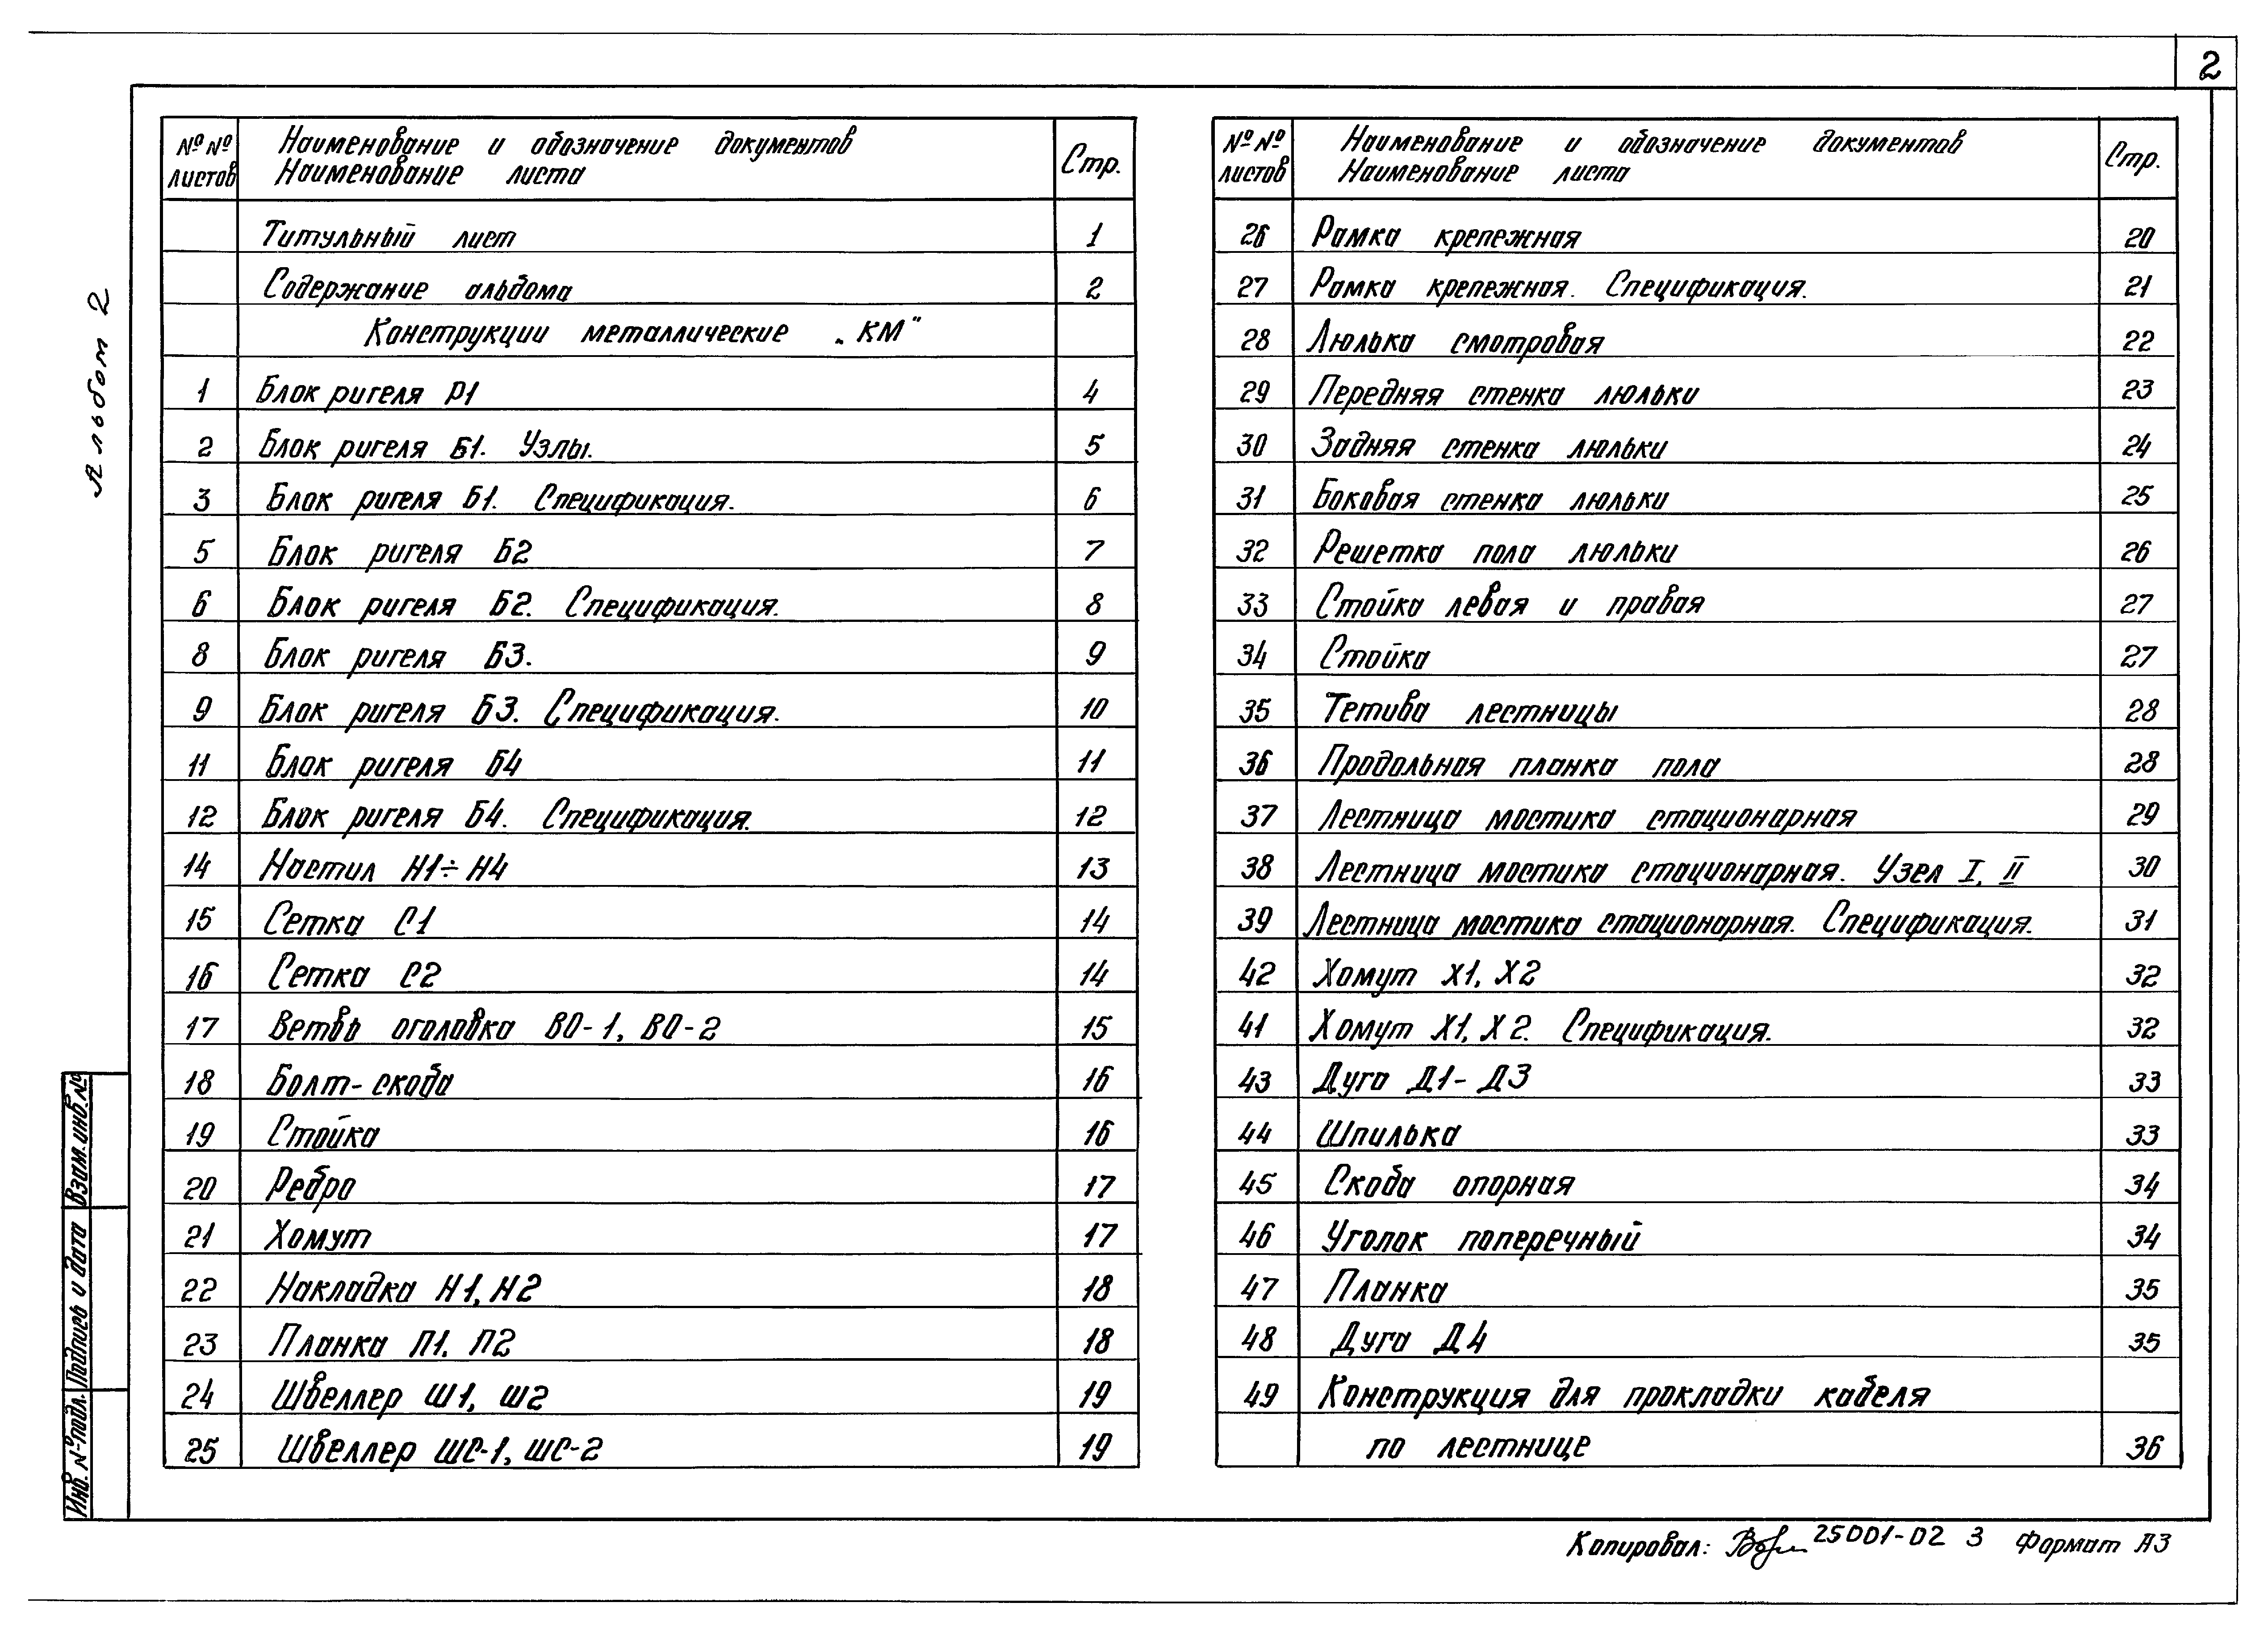 2
Альбом 2
№№ листов
Наименование и обозначение документов
Наименование листа
Стр.
Титульный лист 1
Содержание альбома 2
Конструкции металлические „КМ"
1 Блок ригеля Р1 4
2 Блок ригеля Б1. Узлы. 5
3 Блок ригеля Б1. Спецификация. 6
5 Блок ригеля Б2 7
6 Блок ригеля Б2. Спецификация. 8
8 Блок ригеля Б3. 9
9 Блок ригеля Б3. Спецификация. 10
11 Блок ригеля Б4 11
12 Блок ригеля Б4. Спецификация. 12
14 Настил Н1÷Н4 13
15 Сетка С1 14
16 Сетка С2 14
17 Ветвь оголовка ВО-1, ВО-2 15
18 Болт-скоба 16
19 Стойка 16
20 Ребро 17
21 Хомут 17
22 Накладка Н1, Н2 18
23 Планка П1, П2 18
24 Швеллер Ш1, Ш2 19
25 Швеллер ШС-1, ШС-2 19
№№ листов
Наименование и обозначение документов
Наименование листа
Стр.
26 Рамка крепежная 20
27 Рамка крепежная. Спецификация. 21
28 Люлька смотровая 22
29 Передняя стенка люльки 23
30 Задняя стенка люльки 24
31 Боковая стенка люльки 25
32 Решетка пола люльки 26
33 Стойка левая и правая 27
34 Стойка 27
35 Тетива лестницы 28
36 Продольная планка пола 28
37 Лестница мостика стационарная 29
38 Лестница мостика стационарная. Узел I, II 30
39 Лестница мостика стационарная. Спецификация. 31
42 Хомут Х1, Х2 32
41 Хомут Х1, Х2. Спецификация. 32
43 Дуга Д1-Д3 33
44 Шпилька 33
45 Скоба опорная 34
46 Уголок поперечный 34
47 Планка 35
48 Дуга Д4 35
49 Конструкция для прокладки кабеля
по лестнице 36
Взам. инв. №
Подпись и дата
Инв. № подл.
Копировал: 25001-02 3 Формат А3